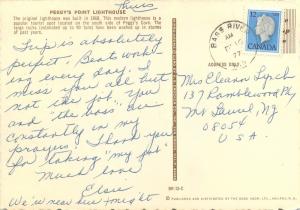 Thurs
PEGGY'S POINT LIGHTHOUSE
The original lighthouse was built in 1868. This modern lighthouse is a
popular tourist spot located on the south side of Peggy's Cove. The
large rocks (estimated up to 90 tons) have been washed up by storms
of past years.
BASS RIVER
AM
17
12
CANADA
ADDRESS ONLY
Trip is absolutely
perfect. Best work
ing every day. I
miss you all but
not the job. You
and "the boss" are
constantly in my
prayers. Thank you
for taking "my job"
Much love
Elsie
We're near here tonight
Mrs Eleann Lynch
137 Ramblewood Pky
Mt. Laurel, NJ
08054
U.S.A.
DR-13-C
PUBLISHED AND DISTRIBUTED BY THE BOOK ROOM, LTD., HALIFAX, N.S.